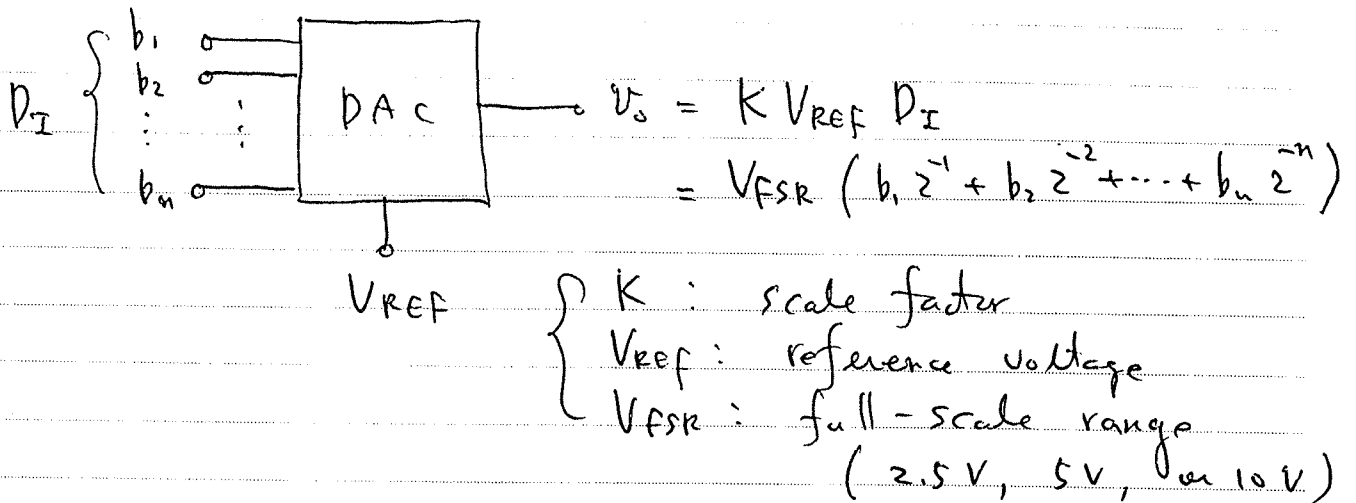 b₁
b₂
D_I { ⋮ ⋮ DAC v_o = K V_REF D_I
bₙ = V_FSR (b₁ 2⁻¹ + b₂ 2⁻² + ⋯ + bₙ 2⁻ⁿ)
V_REF { K : scale factor
V_REF : reference voltage
V_FSR : full-scale range
(2.5 V, 5 V, or 10 V)